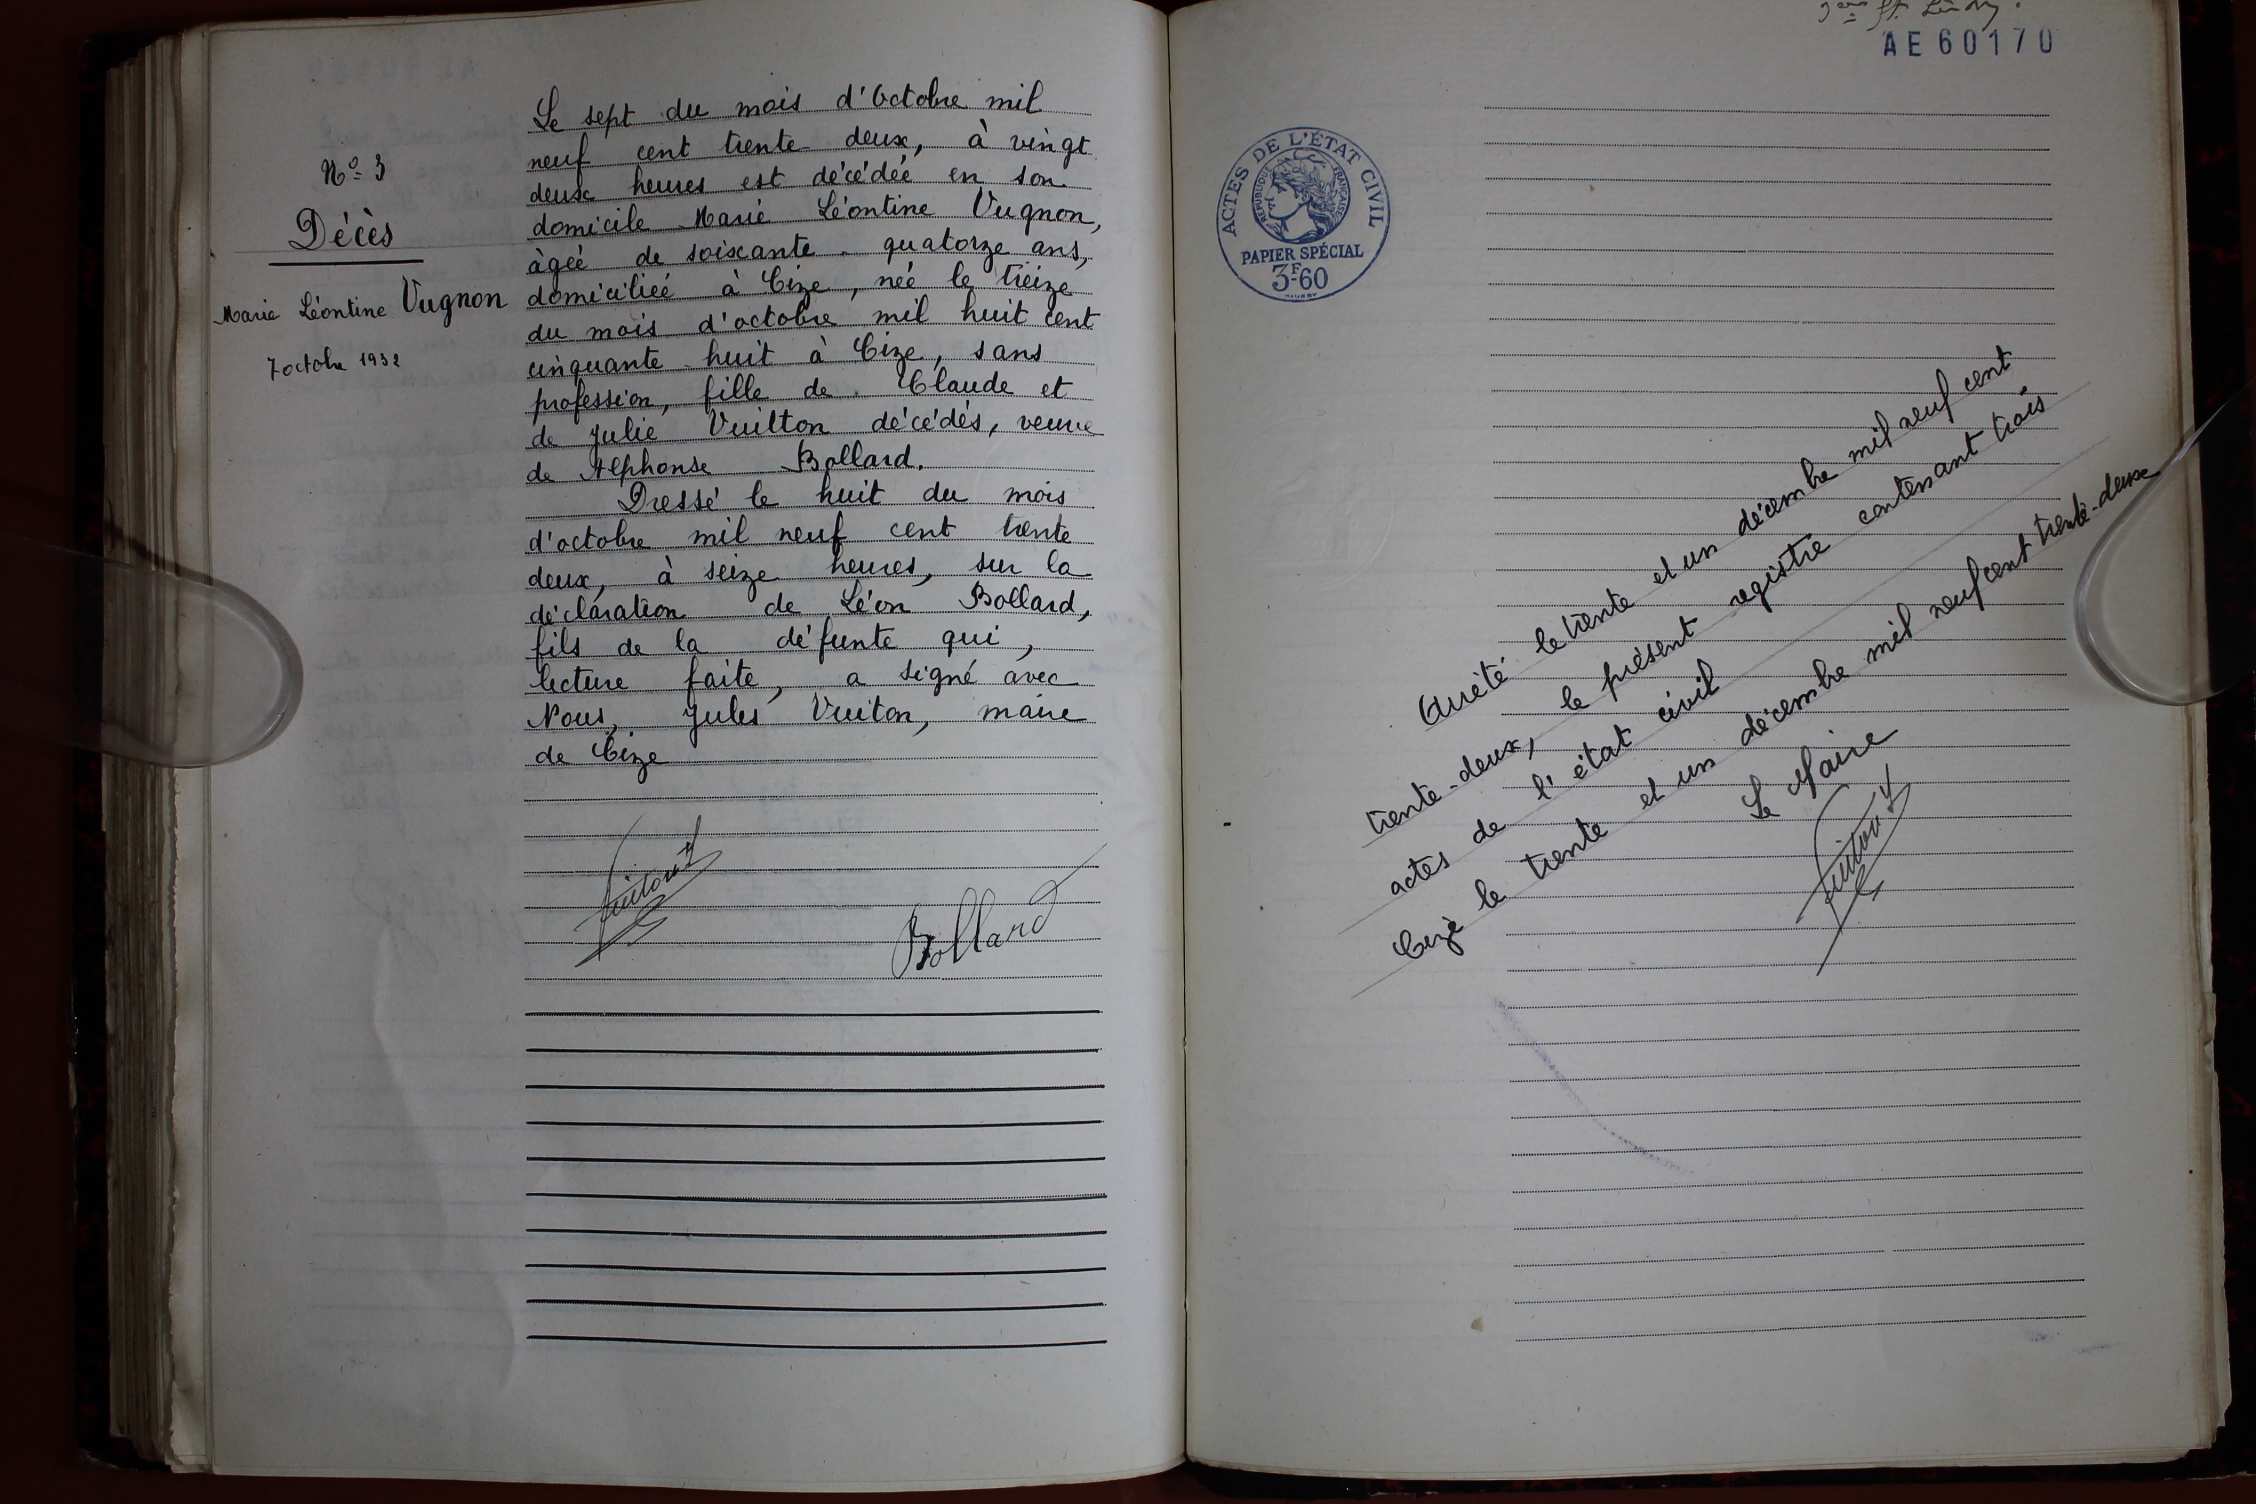 Nº 3
Décès
Marie Léontine Vugnon
7 octobre 1932
Le sept du mois d'Octobre mil
neuf cent trente deux, à vingt
deux heures est décédée en son
domicile Marie Léontine Vugnon,
âgée de soixante-quatorze ans,
domiciliée à Cize, née le treize
du mois d'octobre mil huit cent
cinquante-huit à Cize, sans
profession, fille de Claude et
de Julie Vuitton décédés, veuve
de Alphonse Bollard.
Dressé le huit du mois
d'octobre mil neuf cent trente
deux, à seize heures, sur la
déclaration de Léon Bollard,
fils de la défunte qui,
lecture faite, a signé avec
Nous, Jules Vuiton, maire
de Cize
Vuiton J
Bollard
AE 60170
ACTES DE L'ÉTAT CIVIL
RÉPUBLIQUE FRANÇAISE
PAPIER SPÉCIAL
3F60
Arrêté le trente et un décembre mil neuf cent
trente-deux, le présent registre contenant trois
actes de l'état civil
Cize le trente et un décembre mil neuf cent trente-deux
Le Maire
Vuiton J